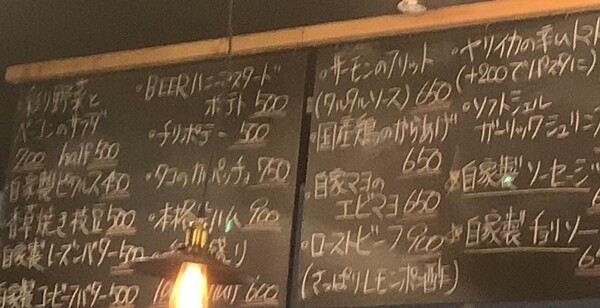 ・彩り野菜と
ベーコンのサラダ
900 half 500
・自家製ピクルス 450
・香草焼き枝豆 500
・自家製レーズンバター 500
・自家製コーヒーバター 500
・BEERハニーマスタード
ポテト 500
・チリポテト 500
・タコのカルパッチョ 750
・本格生ハム 900
盛り
half 600
・サーモンのフリット
(タルタルソース) 650
・国産鶏のからあげ
650
・自家マヨの
エビマヨ 650
・ローストビーフ 900
(さっぱりレモンポン酢)
・ヤリイカの辛いトマト
(+200でパスタに)
・ソフトシェル
ガーリックシュリン
自家製ソーセージ
自家製チョリソー